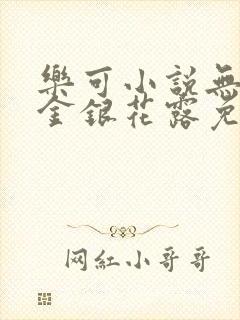 樂可小說無
金銀花露免
网紅小哥哥